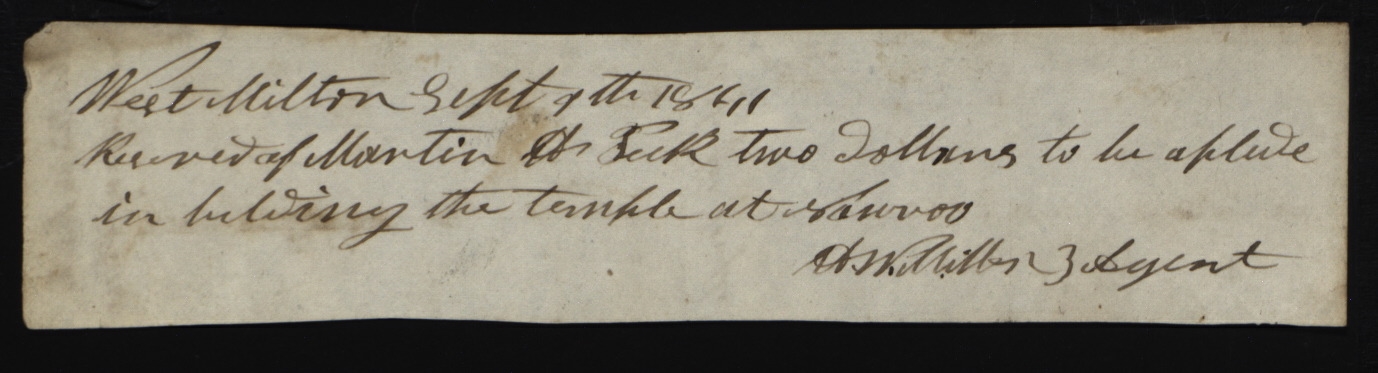 West Milton Sept 9th 1841
Received of Martin H Peck two Dollars to be aplide
in bilding the temple at Nauvoo
H. W. Miller } Agent